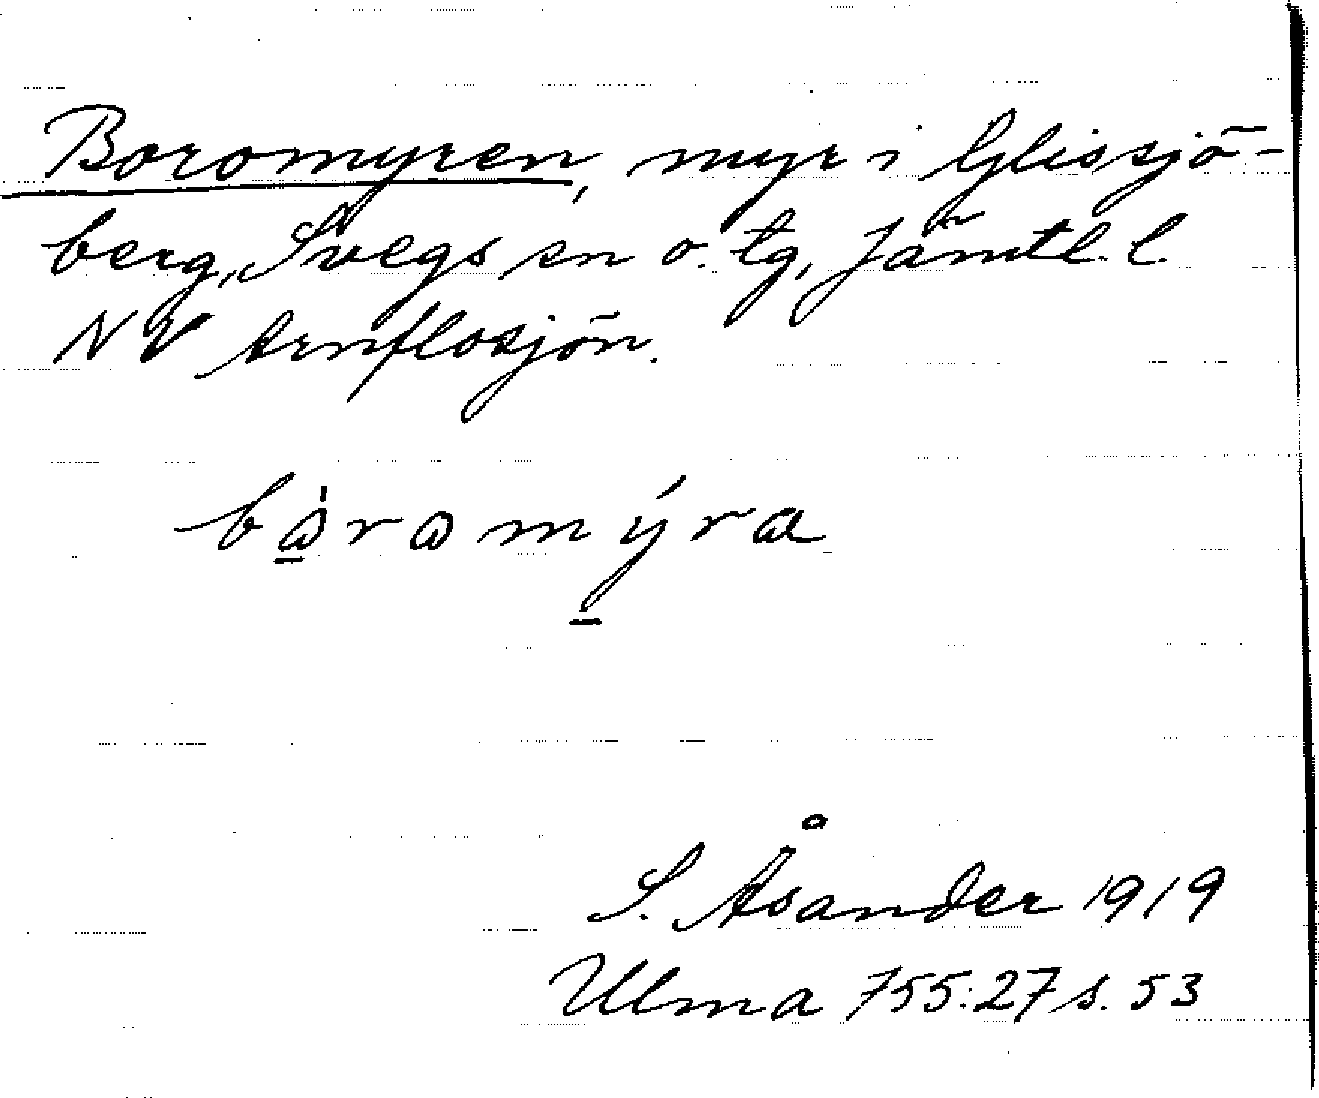 Boromyren, myr i Glissjö-
berg, Svegs sn o. tg, Jämtl. l.
NV Arnflosjön.
bòromýra
S. Åsander 1919
Ulma 755:27 s. 53